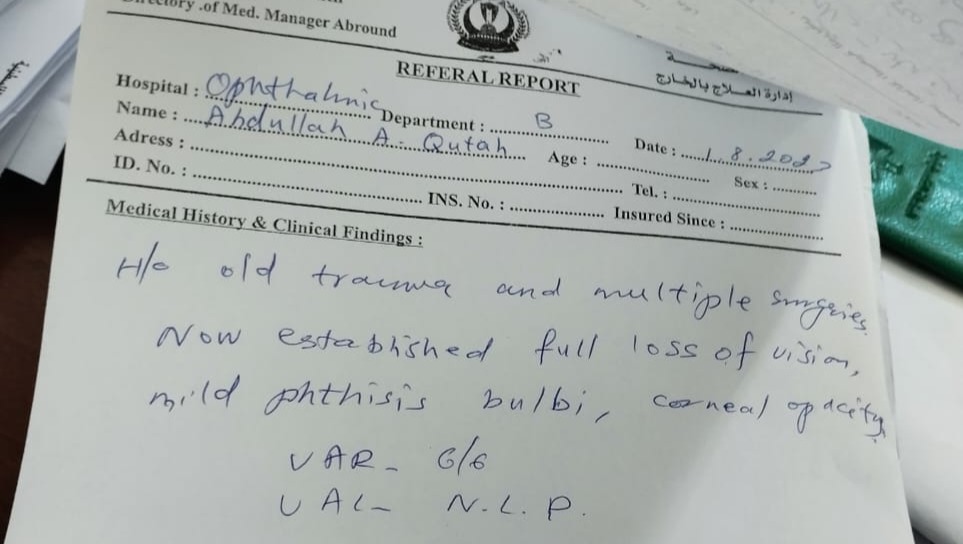 Directory .of Med. Manager Abround
إدارة العلاج بالخارج
REFERAL REPORT
Hospital : Ophthalmic Department : B Date : 1.8.202
Name : Abdullah A. Qutah Age : Sex :
Adress : Tel. :
ID. No. : INS. No. : Insured Since :
Medical History & Clinical Findings :
H/o old trauma and multiple surgeries.
Now established full loss of vision,
mild phthisis bulbi, corneal opacity.
VAR - 6/6
VAL - N.L.P.